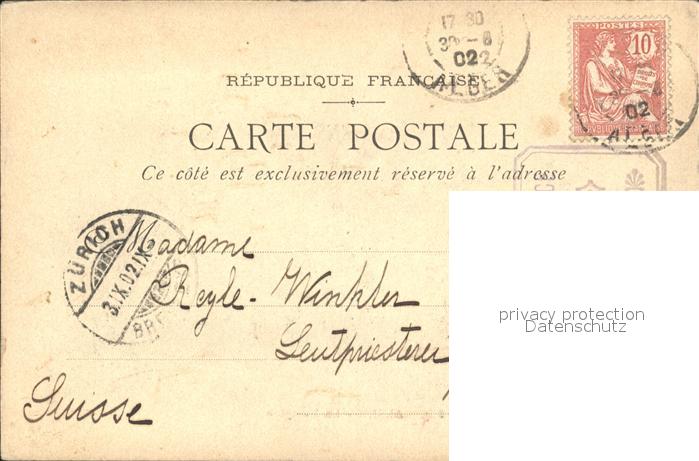 17 30
30 - 8
02
ALGER
POSTES
10
RÉPUBLIQUE FRANÇAISE
02
ALGER
RÉPUBLIQUE FRANÇAISE
CARTE POSTALE
Ce côté est exclusivement réservé à l'adresse
ZÜRICH
3.IX.02.IX
BRF
Madame
Reyle-Winkler
Leutpriesterei
Suisse
privacy protection
Datenschutz